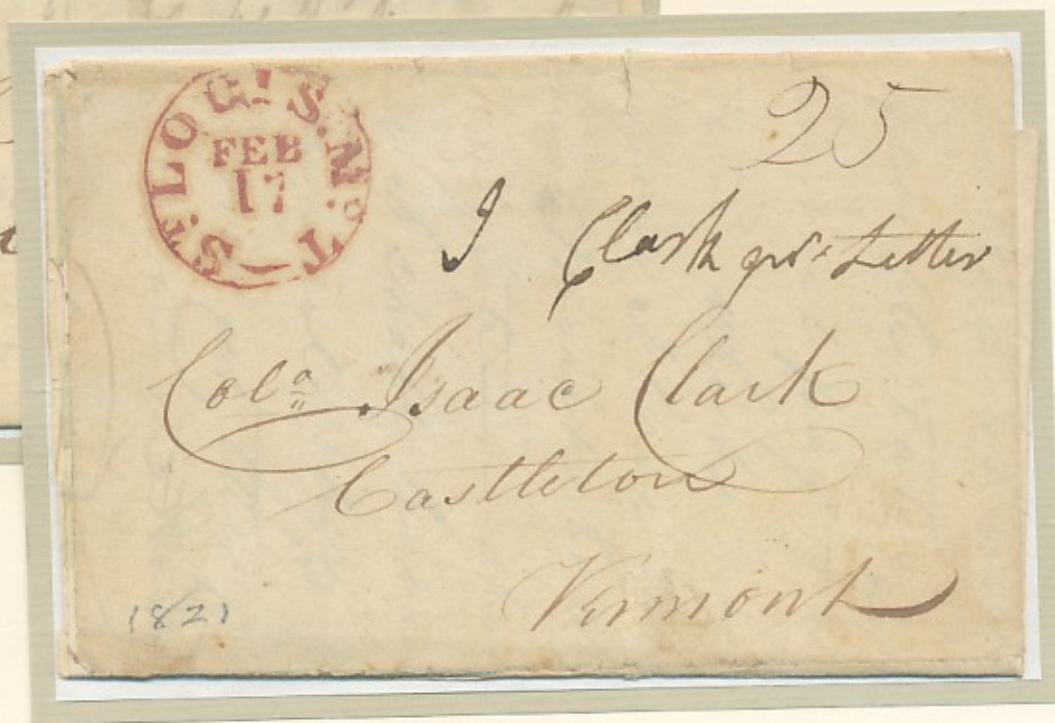 ST. LOUIS. Mo. T
FEB
17
25
I Clark Letter
Colo Isaac Clark
Castleton
Vermont
1821